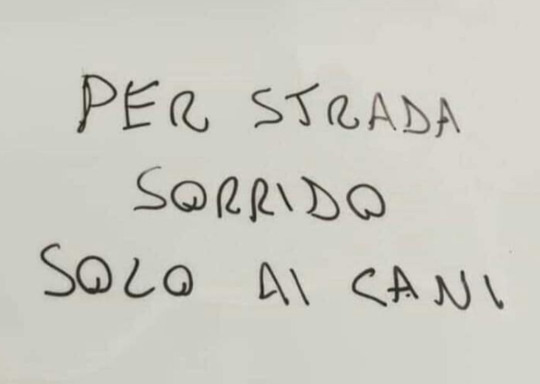 PER STRADA
SORRIDO
SOLO AI CANI